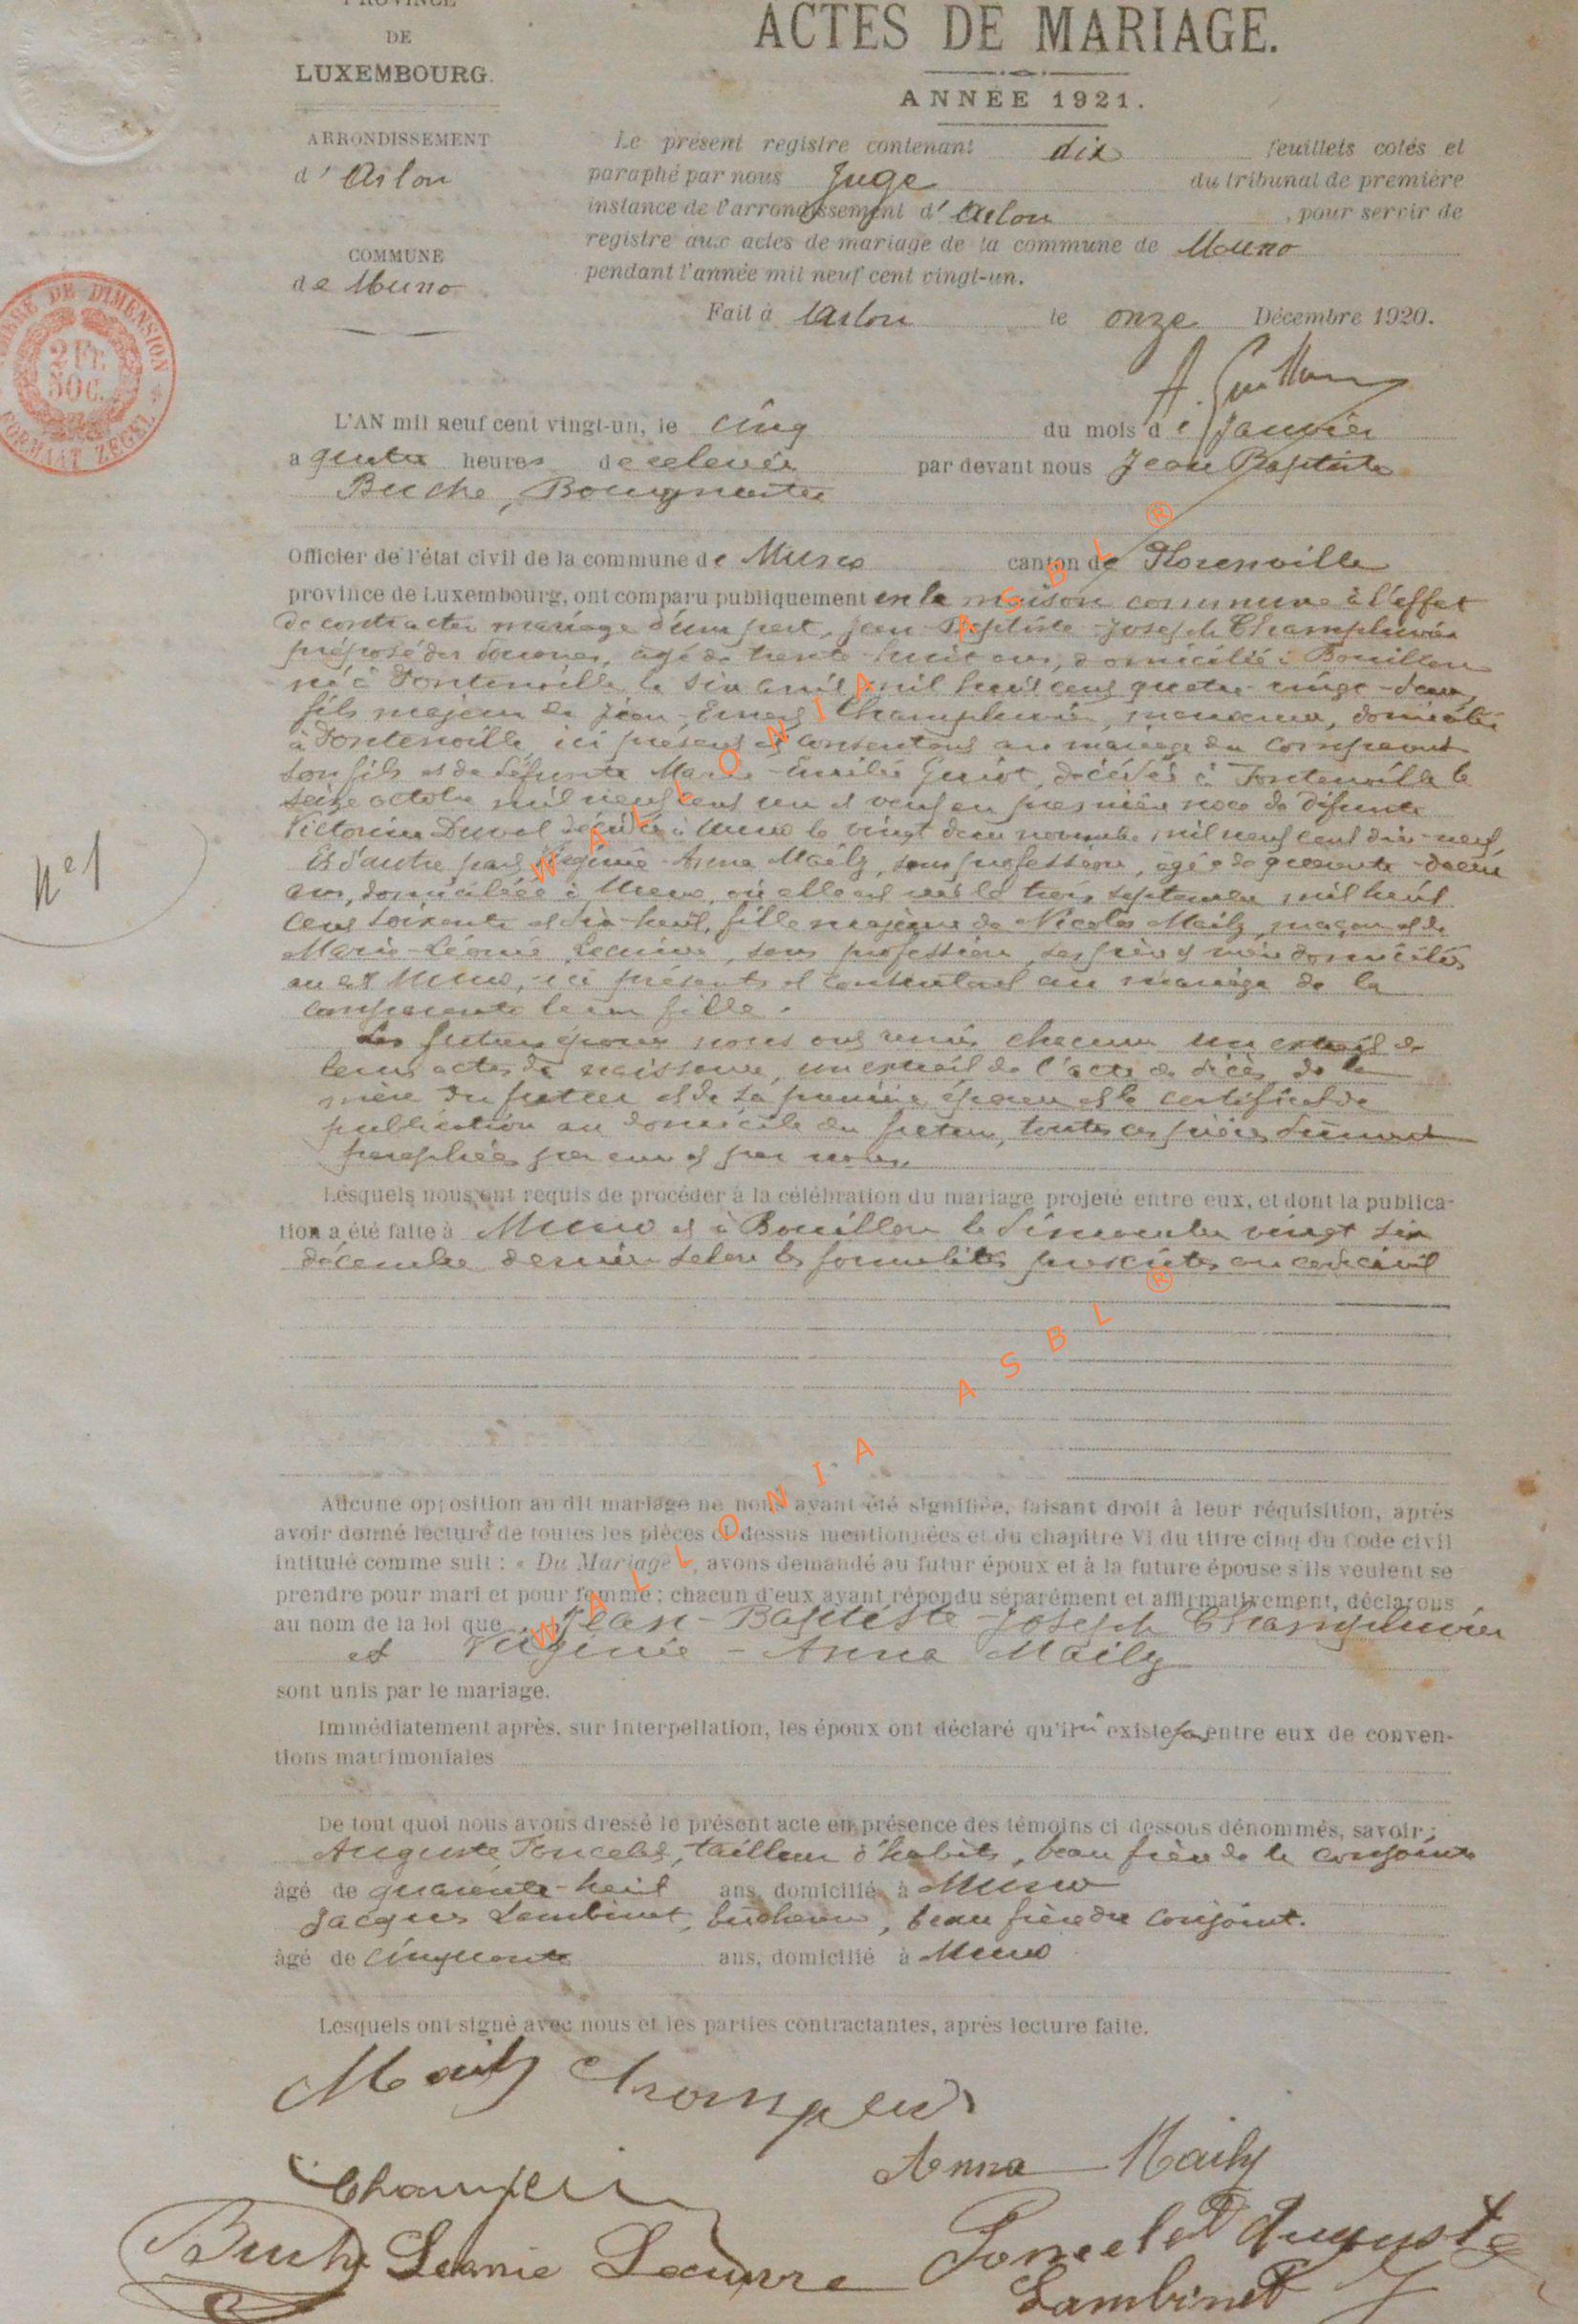 PROVINCE
DE
LUXEMBOURG.
ARRONDISSEMENT
d' Arlon
COMMUNE
de Muno
TIMBRE DE DIMENSION
2 FR.
50 C.
FORMAAT ZEGEL
N° 1
ACTES DE MARIAGE.
ANNÉE 1921.
Le présent registre contenant dix feuillets cotés et
paraphé par nous Juge du tribunal de première
instance de l'arrondissement d' Arlon , pour servir de
registre aux actes de mariage de la commune de Muno
pendant l'année mil neuf cent vingt-un.
Fait à Arlon le onze Décembre 1920.
L'AN mil neuf cent vingt-un, le cinq du mois de Janvier
a quatre heures de relevée par devant nous Jean Baptiste
Buche, Bourgmestre
Officier de l'état civil de la commune de Muno canton de Florenville
province de Luxembourg, ont comparu publiquement en la maison commune à l'effet
de contracter mariage d'une part, Jean-Baptiste-Joseph Champluvier
préposé des douanes, agé de trente-huit ans, domicilié à Bouillon
né à Fontenoille le six avril mil huit cent quatre-vingt-deux,
fils majeur de Jean- Champluvier, domicilié
à Fontenoille, ici présent et consentant au mariage du comparant
son fils et de défunte Marie-Emilie Guiot, décédée à Fontenoille le
seize octobre mil neuf cent un et veuf en première noce de défunte
Victorine Duval décédée à Muno le vingt deux novembre mil neuf cent dix-neuf,
Et d'autre part Virginie-Anna Maily, sans profession, agée de quarante-deux
ans, domiciliée à Muno, où elle est née le trois septembre mil huit
cent soixante et dix-huit, fille majeure de Nicolas Maily, maçon et de
Marie-Léonie Lecuivre, sans profession, ses père et mère domiciliés
au dit Muno, ici présents et consentant au mariage de la
comparante leur fille.
Les futurs époux nous ont remis chacun un extrait de
leurs actes de naissance, un extrait de l'acte de décès de la
mère du futur et de sa première épouse et le certificat de
publication au domicile du futur, toutes ces pièces dûment
paraphées par eux et par nous.
Lesquels nous ont requis de procéder à la célébration du mariage projeté entre eux, et dont la publica-
tion a été faite à Muno et à Bouillon le dimanche vingt six
décembre dernier selon les formalités prescrites au code civil
Aucune opposition au dit mariage ne nous ayant été signifiée, faisant droit à leur réquisition, après
avoir donné lecture de toutes les pièces ci dessus mentionnées et du chapitre VI du titre cinq du Code civil
intitulé comme suit : « Du Mariage », avons demandé au futur époux et à la future épouse s'ils veulent se
prendre pour mari et pour femme ; chacun d'eux ayant répondu séparément et affirmativement, déclarons
au nom de la loi que Jean-Baptiste-Joseph Champluvier
et Virginie-Anna Maily
sont unis par le mariage.
Immédiatement après, sur interpellation, les époux ont déclaré qu'il n'existe pas entre eux de conven-
tions matrimoniales
De tout quoi nous avons dressé le présent acte en présence des témoins ci dessous dénommés, savoir :
Auguste Poncelet, tailleur d'habits, beau frère de la conjointe
âgé de quarante-huit ans, domicilié à Muno
Jacques Lambinet, bucheron, beau frère du conjoint.
âgé de cinquante ans, domicilié à Muno
Lesquels ont signé avec nous et les parties contractantes, après lecture faite.
Maily
Anna Maily
Buche Léonie Lecuivre Poncelet Auguste
Lambinet J
WALLONIA ASBL ®
WALLONIA ASBL ®